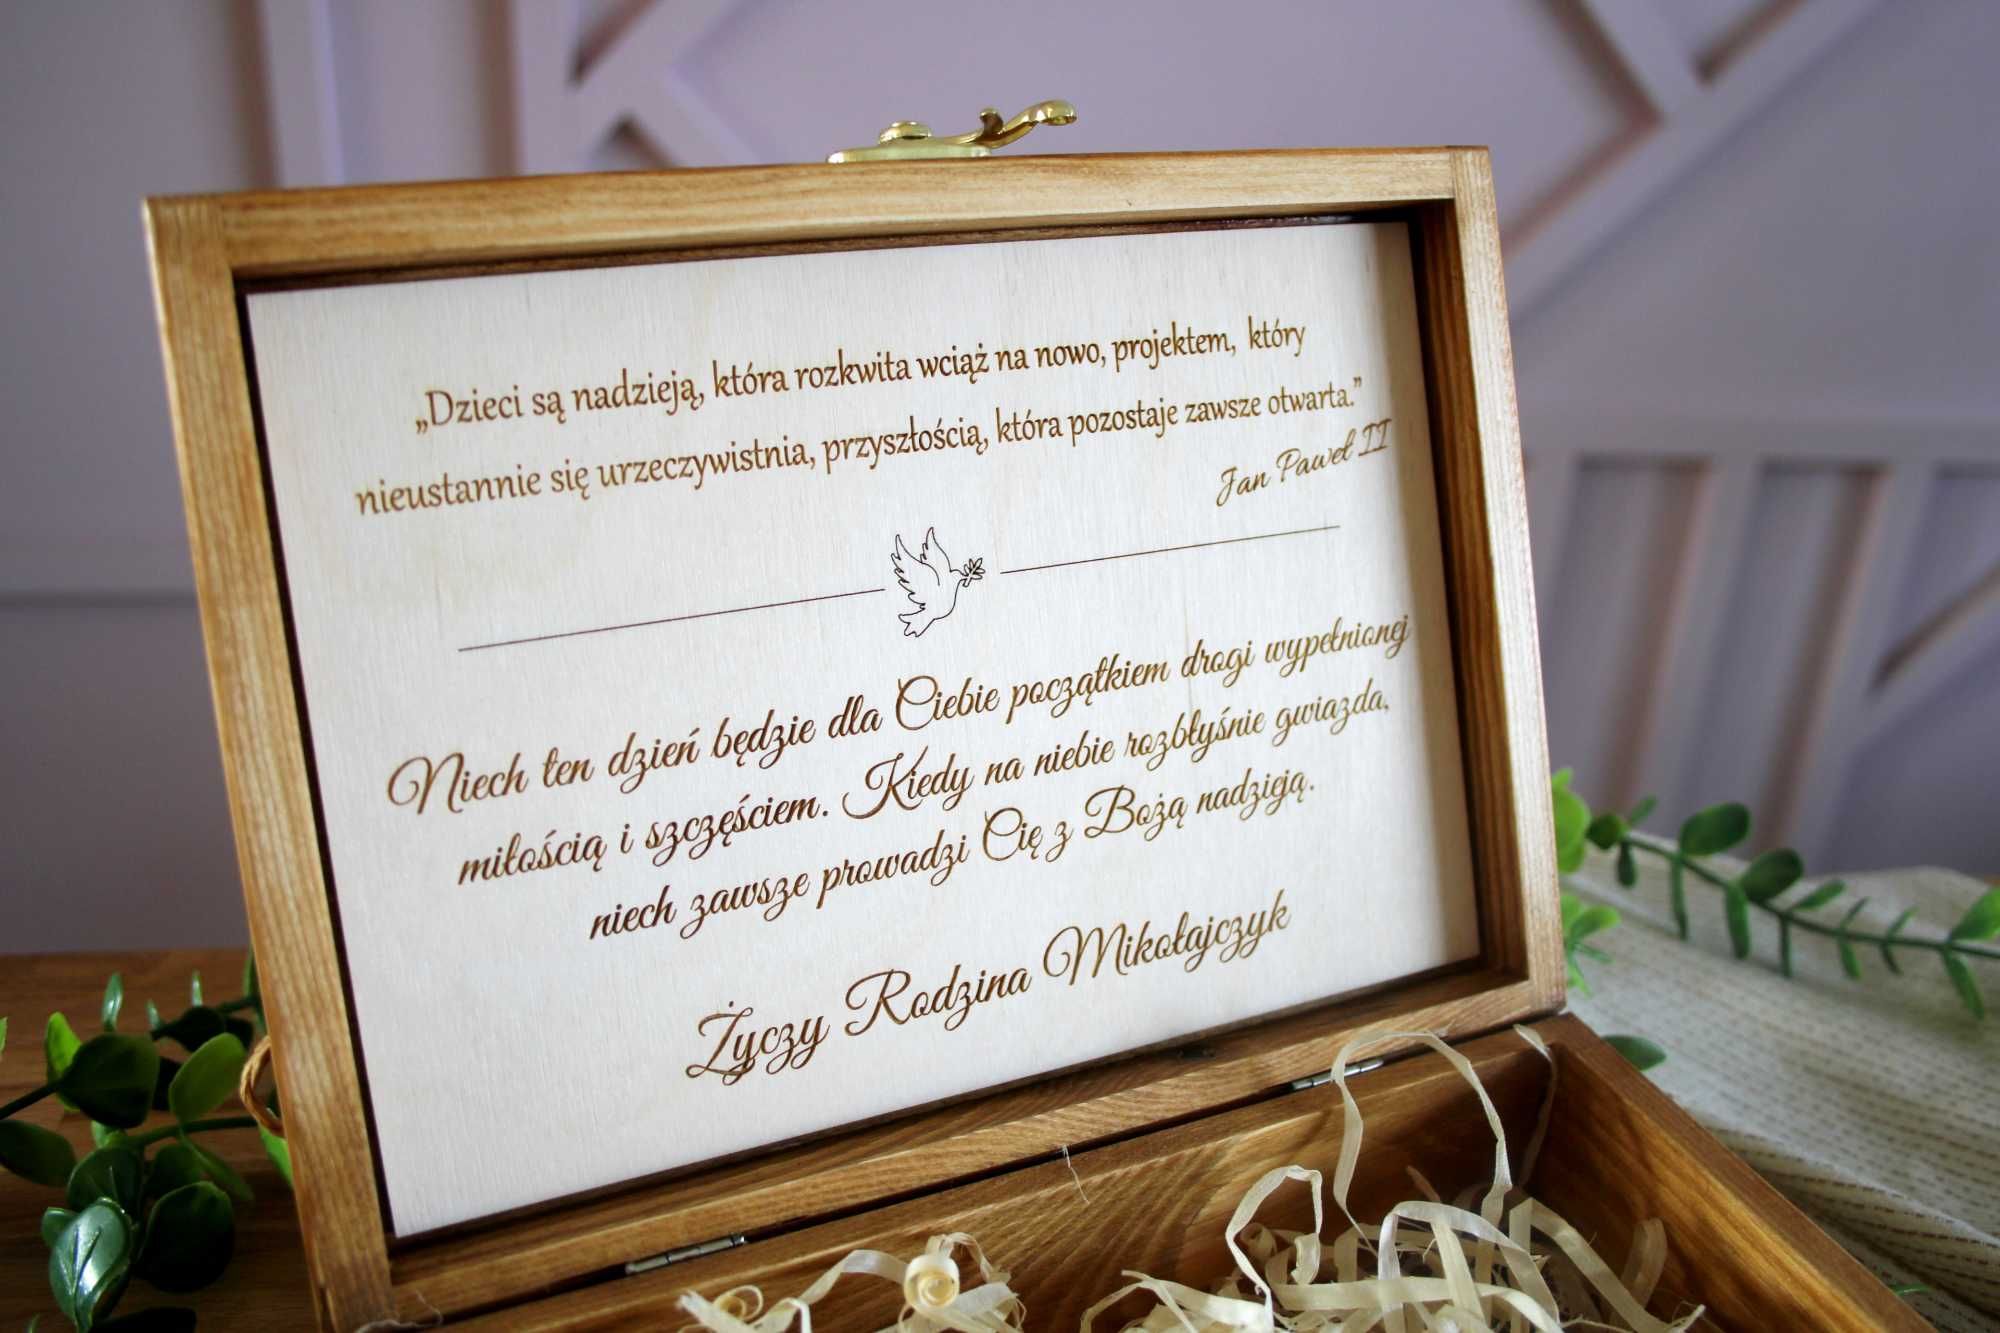 „Dzieci są nadzieją, która rozkwita wciąż na nowo, projektem, który
nieustannie się urzeczywistnia, przyszłością, która pozostaje zawsze otwarta.”
Jan Paweł II
Niech ten dzień będzie dla Ciebie początkiem drogi wypełnionej
miłością i szczęściem. Kiedy na niebie rozbłyśnie gwiazda,
niech zawsze prowadzi Cię z Bożą nadzieją.
Życzy Rodzina Mikołajczyk